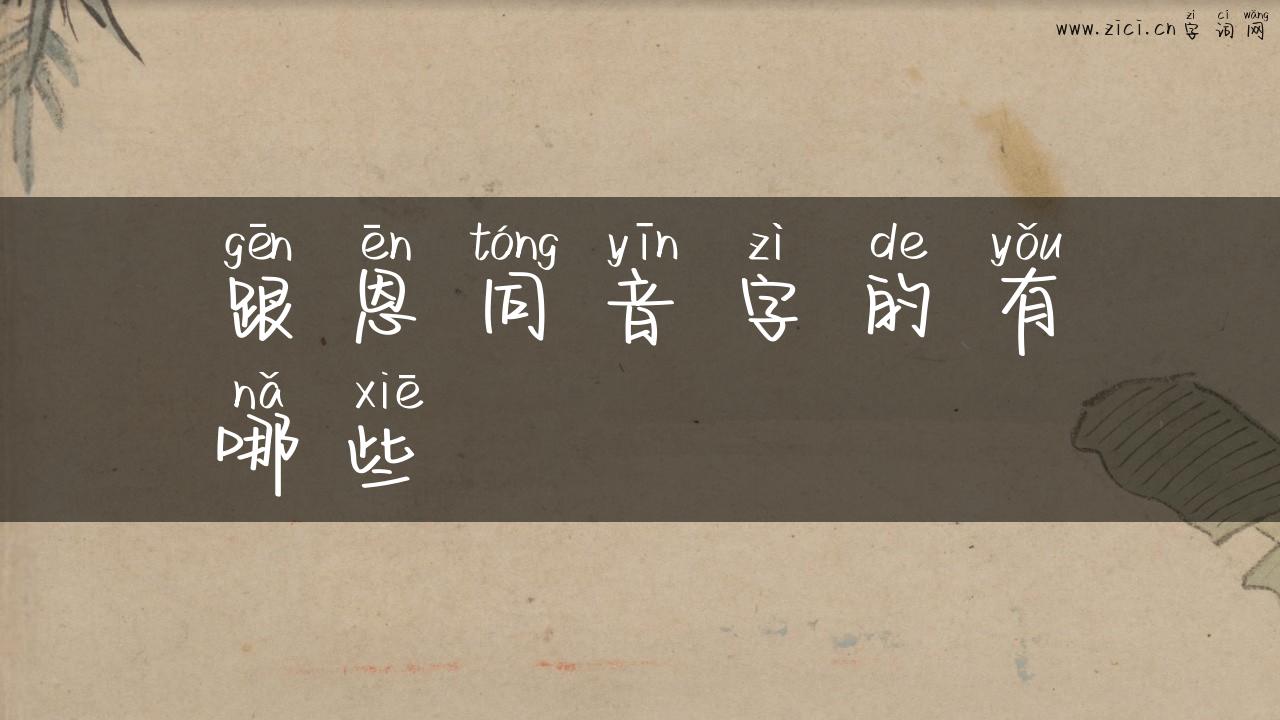 zì cí wǎng
www.zici.cn 字词网
gēn ēn tóng yīn zì de yǒu
跟恩同音字的有
nǎ xiē
哪些